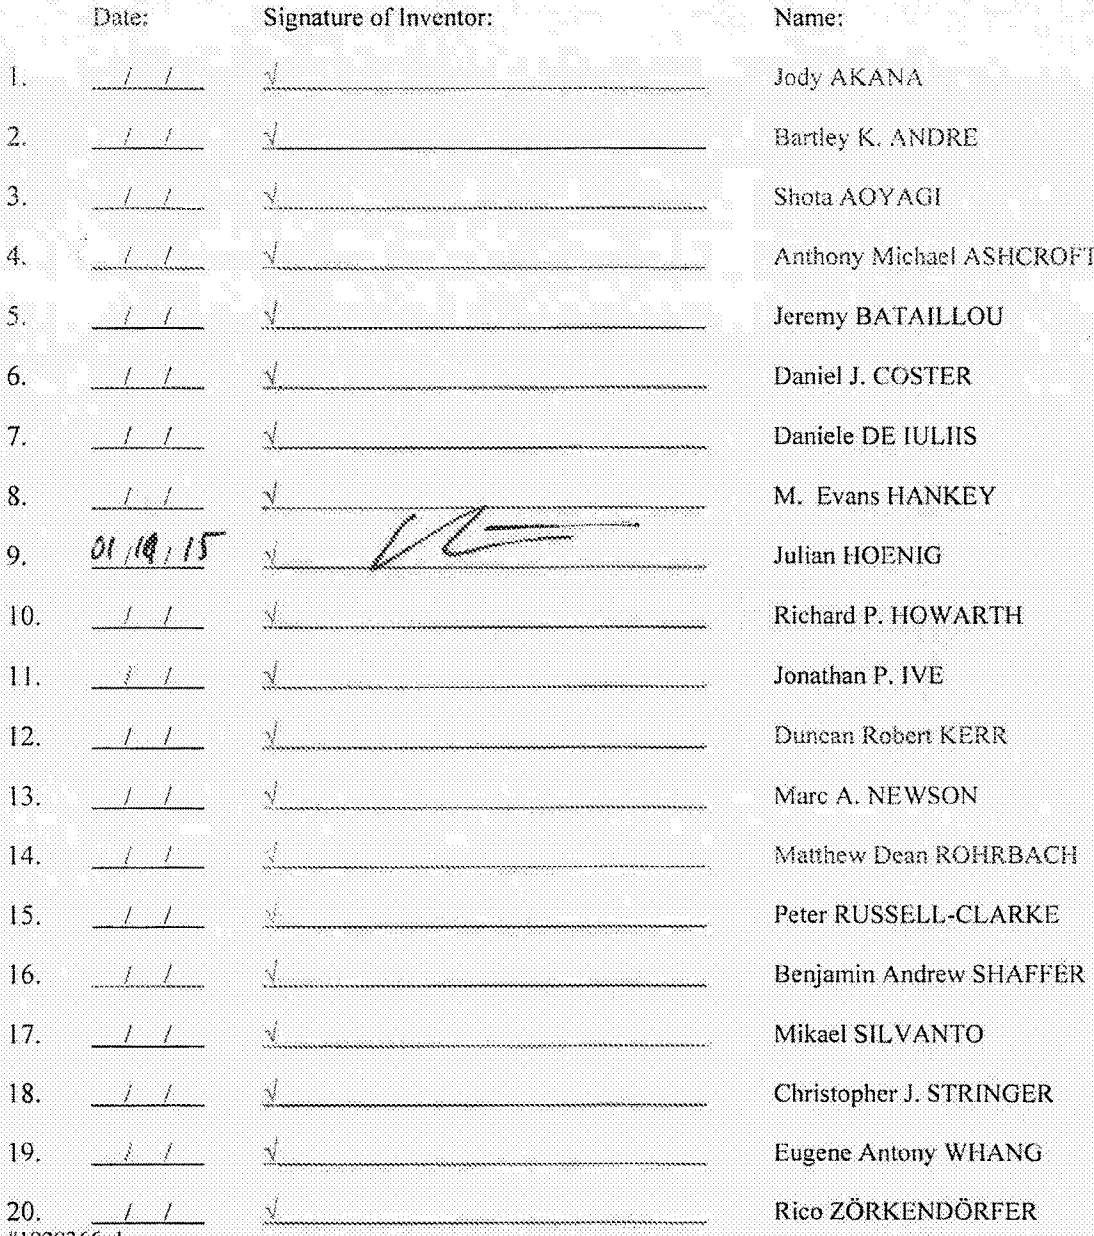 Date: Signature of Inventor: Name:
1. / / √ Jody AKANA
2. / / √ Bartley K. ANDRE
3. / / √ Shota AOYAGI
4. / / √ Anthony Michael ASHCROFT
5. / / √ Jeremy BATAILLOU
6. / / √ Daniel J. COSTER
7. / / √ Daniele DE IULIIS
8. / / √ M. Evans HANKEY
9. 01 / / 15 √ Julian HOENIG
10. / / √ Richard P. HOWARTH
11. / / √ Jonathan P. IVE
12. / / √ Duncan Robert KERR
13. / / √ Marc A. NEWSON
14. / / √ Matthew Dean ROHRBACH
15. / / √ Peter RUSSELL-CLARKE
16. / / √ Benjamin Andrew SHAFFER
17. / / √ Mikael SILVANTO
18. / / √ Christopher J. STRINGER
19. / / √ Eugene Antony WHANG
20. / / √ Rico ZÖRKENDÖRFER